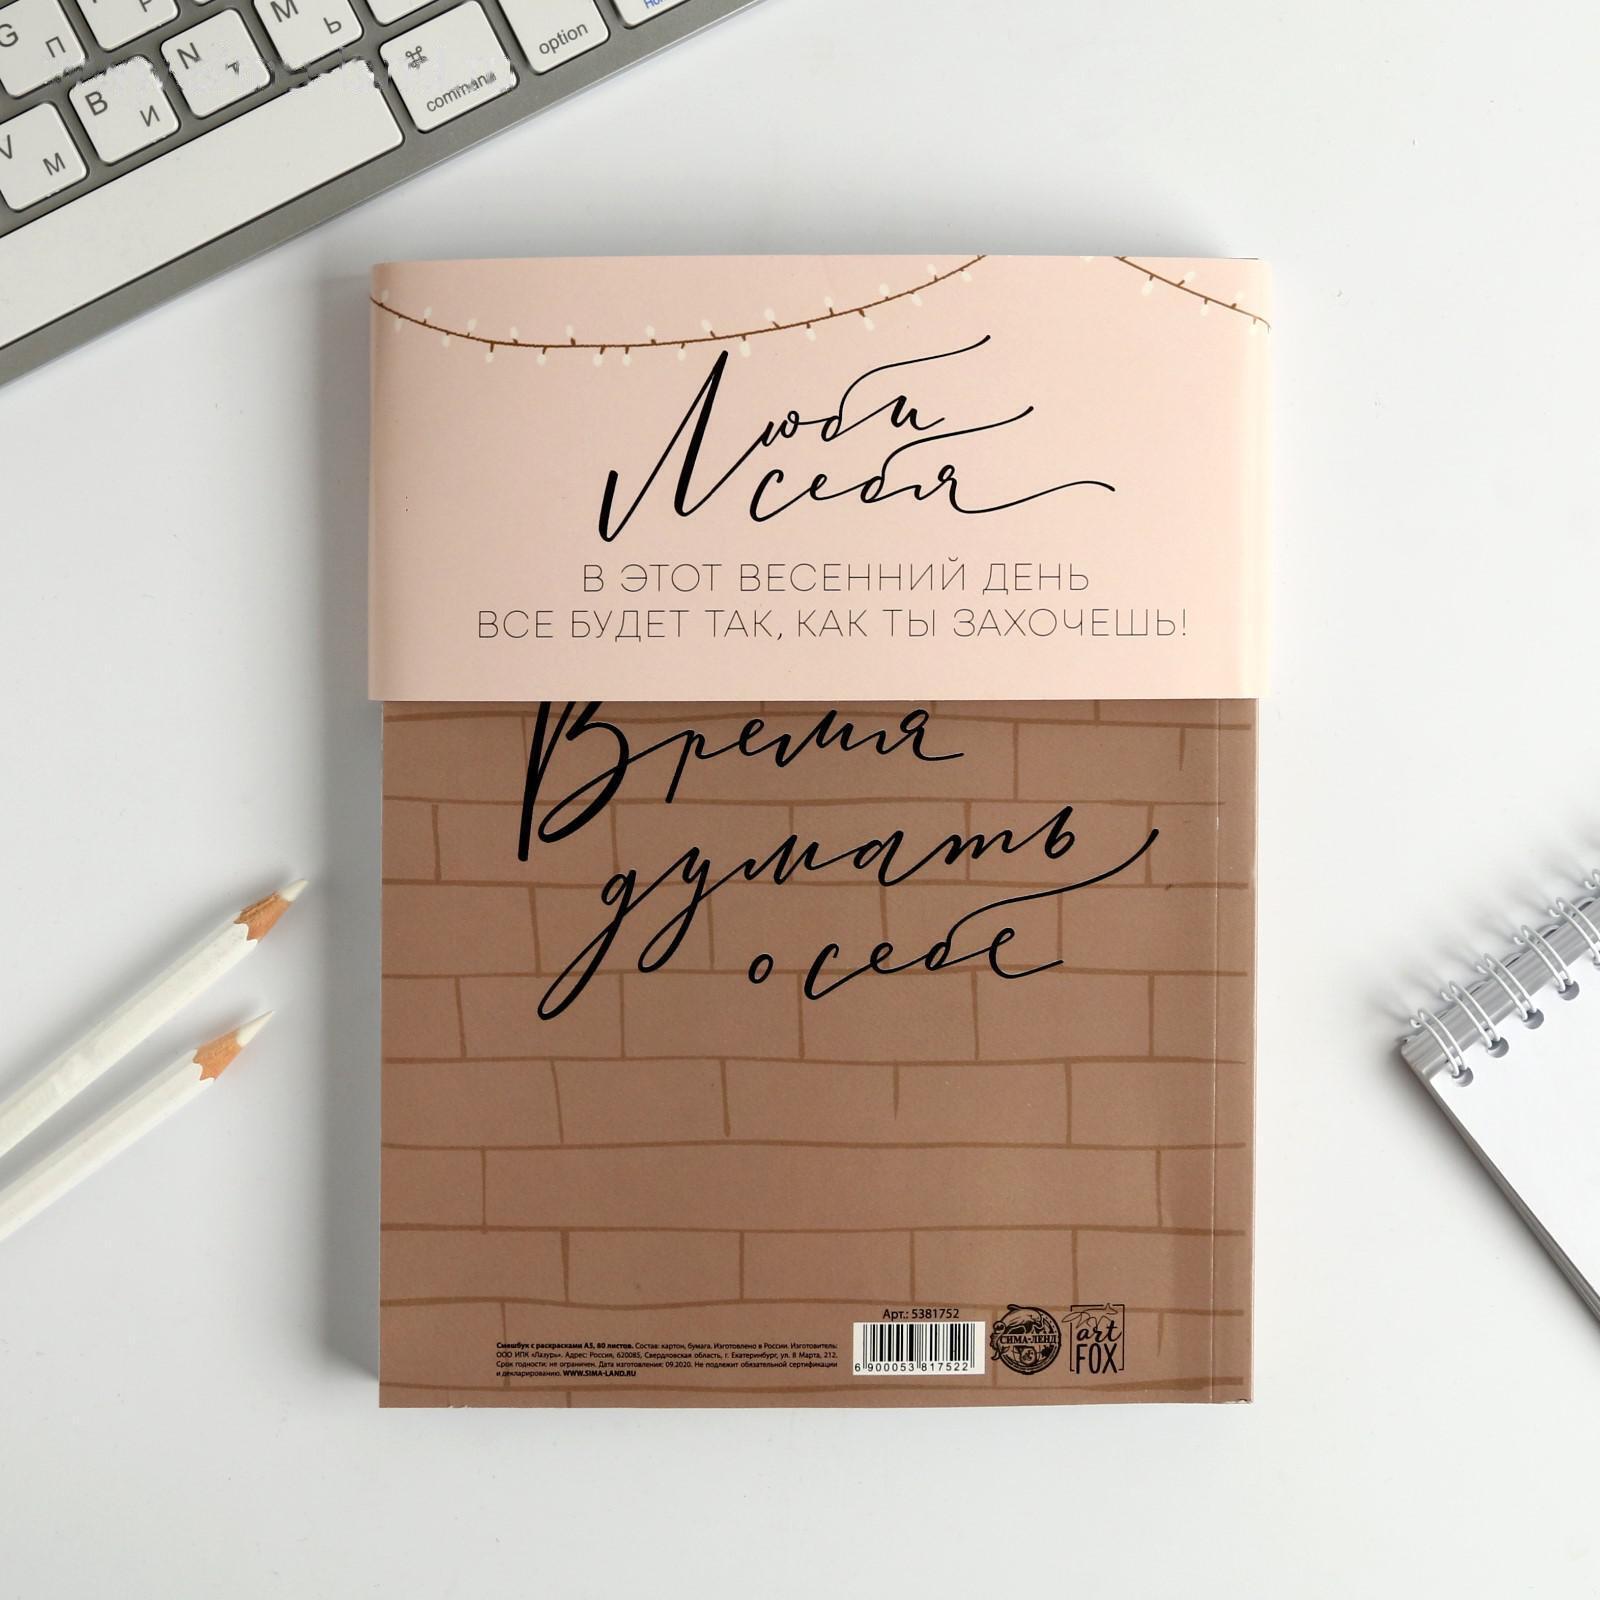 G П
Р
М Ь
N Т
В И
V М
⌘
command
option
Люби
себя
В ЭТОТ ВЕСЕННИЙ ДЕНЬ
ВСЕ БУДЕТ ТАК, КАК ТЫ ЗАХОЧЕШЬ!
Время
думать
о себе
Арт.: 5381752
6 900053 817522
СИМА-ЛЕНД
art
FOX
Смешбук с раскрасками А5, 80 листов. Состав: картон, бумага. Изготовлено в России. Изготовитель:
ООО ИПК «Лазурь». Адрес: Россия, 620085, Свердловская область, г. Екатеринбург, ул. 8 Марта, 212.
Срок годности: не ограничен. Дата изготовления: 09.2020. Не подлежит обязательной сертификации
и декларированию. WWW.SIMA-LAND.RU